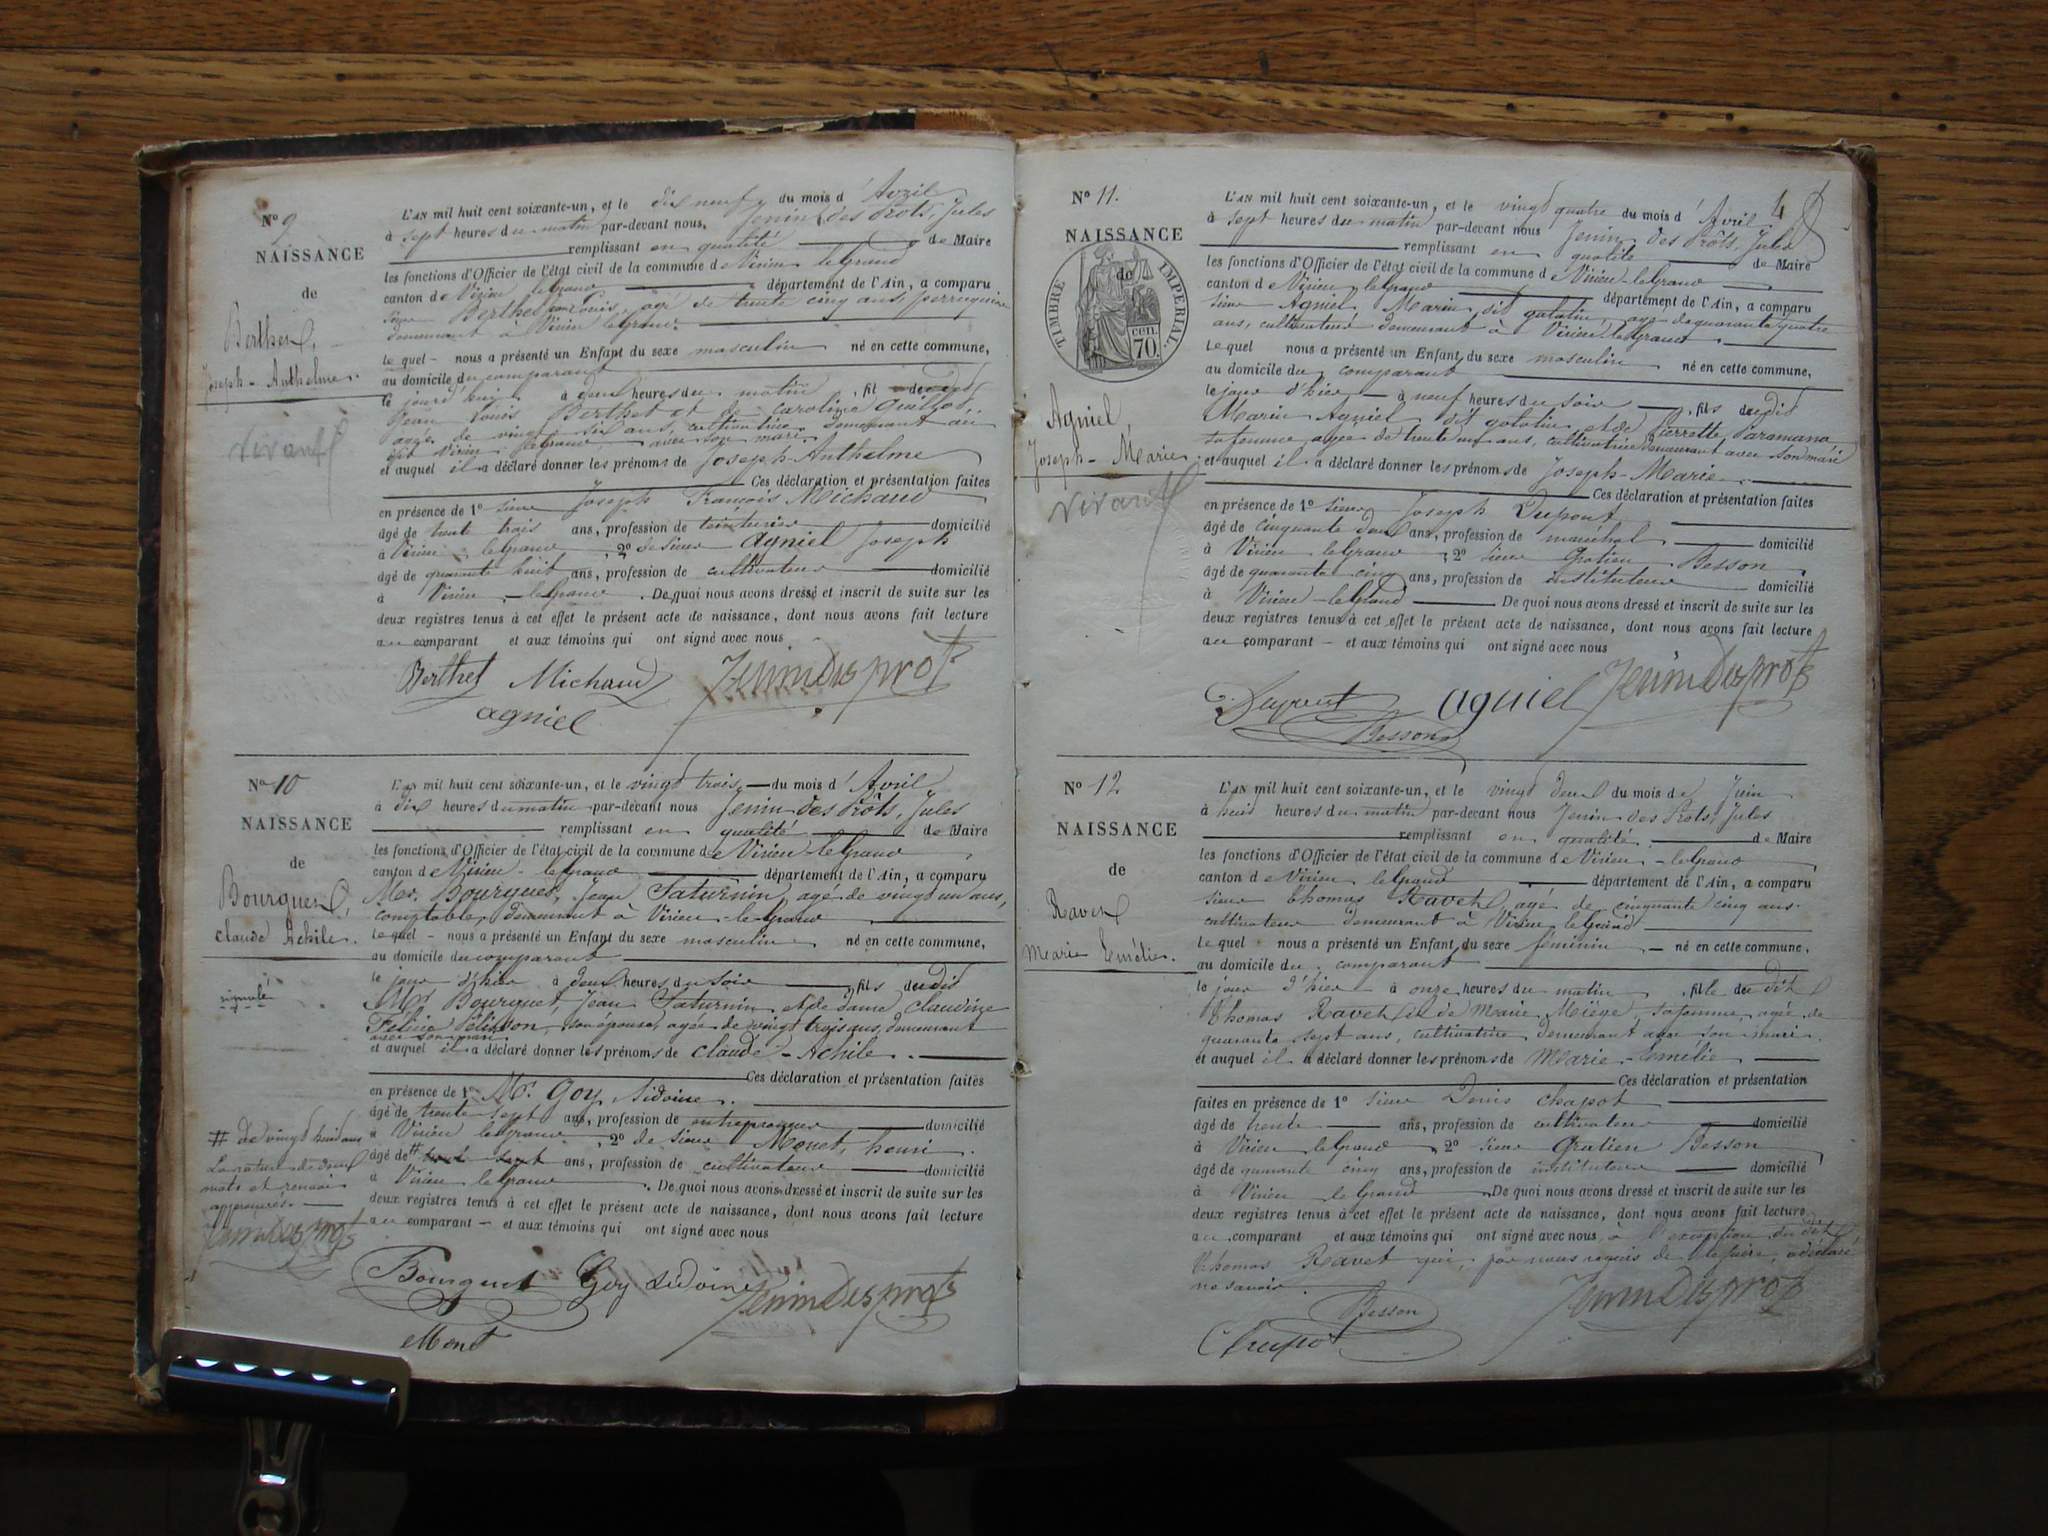 Nº 9
NAISSANCE
de
Berthet,
Joseph-Anthelme.
vivant
L'AN mil huit cent soixante-un, et le dix neuf du mois d'Avril
à sept heures du matin par-devant nous, Jenin des Prôts, Jules
remplissant en qualité de Maire
les fonctions d'Officier de l'état civil de la commune de Virieu leGrand
canton de Virieu leGrand département de l'Ain, a comparu
sieur Berthet Jean Louis, agé de trente cinq ans, perruquier
demeurant à Virieu leGrand.
lequel nous a présenté un Enfant du sexe masculin né en cette commune,
au domicile du comparant
le jourd'hui à deux heures du matin, fils dudit
Jean Louis Berthet et de Caroline Guillot,
agée de vingt six ans, cultivatrice demeurant au
dit Virieu leGrand avec son mari
et auquel il a déclaré donner les prénoms de Joseph-Anthelme
Ces déclaration et présentation faites
en présence de 1º sieur Joseph François Michaud
âgé de trente trois ans, profession de teinturier domicilié
à Virieu-leGrand, 2º de sieur Agniel Joseph
âgé de quarante huit ans, profession de cultivateur domicilié
à Virieu-leGrand. De quoi nous avons dressé et inscrit de suite sur les
deux registres tenus à cet effet le présent acte de naissance, dont nous avons fait lecture
au comparant et aux témoins qui ont signé avec nous
Berthet Michaud JeninDesprots
agniel
Nº 10
NAISSANCE
de
Bourguet,
Claude Achile.
signalé
L'AN mil huit cent soixante-un, et le vingt trois du mois d'Avril
à dix heures du matin par-devant nous Jenin des Prôts, Jules
remplissant en qualité de Maire
les fonctions d'Officier de l'état civil de la commune de Virieu-leGrand
canton de Virieu-leGrand département de l'Ain, a comparu
Mr. Bourguet, Jean Saturnin, agé de vingt un ans,
comptable, demeurant à Virieu-le-Grand
lequel nous a présenté un Enfant du sexe masculin né en cette commune,
au domicile du comparant
le jour d'hier à deux heures du soir, fils dudit
Mr. Bourguet, Jean Saturnin et de dame Claudine
Félicie Pélisson son épouse, agée de vingt trois ans, demeurant
avec son mari
et auquel il a déclaré donner les prénoms de Claude-Achile.
Ces déclaration et présentation faites
en présence de 1º Mr. Goy, Sidoine.
âgé de trente sept ans, profession de entrepreneur domicilié
à Virieu leGrand, 2º de sieur Monet, henri.
âgé de # ans, profession de cultivateur domicilié
à Virieu leGrand. De quoi nous avons dressé et inscrit de suite sur les
deux registres tenus à cet effet le présent acte de naissance, dont nous avons fait lecture
au comparant et aux témoins qui ont signé avec nous
# de vingt huit ans
La rature de deux
mots et renvoi
approuvés.
JeninDesprots
Bourguet Goy Sidoine JeninDesprots
Monet
4
Nº 11.
NAISSANCE
de
TIMBRE IMPERIAL
70 cen.
Agniel,
Joseph-Marie.
vivant
L'AN mil huit cent soixante-un, et le vingt quatre du mois d'Avril
à sept heures du matin par-devant nous Jenin des Prôts, Jules
remplissant en qualité de Maire
les fonctions d'Officier de l'état civil de la commune de Virieu-leGrand
canton de Virieu leGrand département de l'Ain, a comparu
sieur Agniel, Marin dit galatin, agé de quarante quatre
ans, cultivateur demeurant à Virieu leGrand.
lequel nous a présenté un Enfant du sexe masculin né en cette commune,
au domicile du comparant
le jour d'hier à neuf heures du soir, fils dudit
Marin Agniel dit galatin et de Pierrette
sa femme agée de trente un ans, cultivatrice demeurant avec son mari
et auquel il a déclaré donner les prénoms de Joseph-Marie.
Ces déclaration et présentation faites
en présence de 1º sieur Joseph Dupont
âgé de cinquante deux ans, profession de maréchal domicilié
à Virieu leGrand, 2º sieur Gratien Besson,
âgé de quarante cinq ans, profession de instituteur domicilié
à Virieu-leGrand De quoi nous avons dressé et inscrit de suite sur les
deux registres tenus à cet effet le présent acte de naissance, dont nous avons fait lecture
au comparant et aux témoins qui ont signé avec nous
Dupont agniel JeninDesprots
Besson
Nº 12
NAISSANCE
de
Ravet
Marie Emélie.
L'AN mil huit cent soixante-un, et le vingt deux du mois de Juin
à huit heures du matin par-devant nous Jenin des Prots, Jules
remplissant en qualité de Maire
les fonctions d'Officier de l'état civil de la commune de Virieu-leGrand
canton de Virieu leGrand département de l'Ain, a comparu
sieur Thomas Ravet, agé de cinquante cinq ans
cultivateur demeurant à Virieu leGrand
lequel nous a présenté un Enfant du sexe féminin né en cette commune,
au domicile du comparant
le jour d'hier à onze heures du matin, fille du dit
Thomas Ravet et de Marie Miège, sa femme agée de
quarante sept ans, cultivatrice demeurant avec son mari.
et auquel il a déclaré donner les prénoms de Marie-Emélie
Ces déclaration et présentation
faites en présence de 1º sieur Denis Chapot
âgé de trente ans, profession de cultivateur domicilié
à Virieu leGrand, 2º sieur Gratien Besson
âgé de quarante cinq ans, profession de instituteur domicilié
à Virieu leGrand De quoi nous avons dressé et inscrit de suite sur les
deux registres tenus à cet effet le présent acte de naissance, dont nous avons fait lecture
au comparant et aux témoins qui ont signé avec nous, à l'exception du dit
Thomas Ravet qui, par nous requis de le faire, a déclaré
ne savoir.
Besson JeninDesprots
Chapot